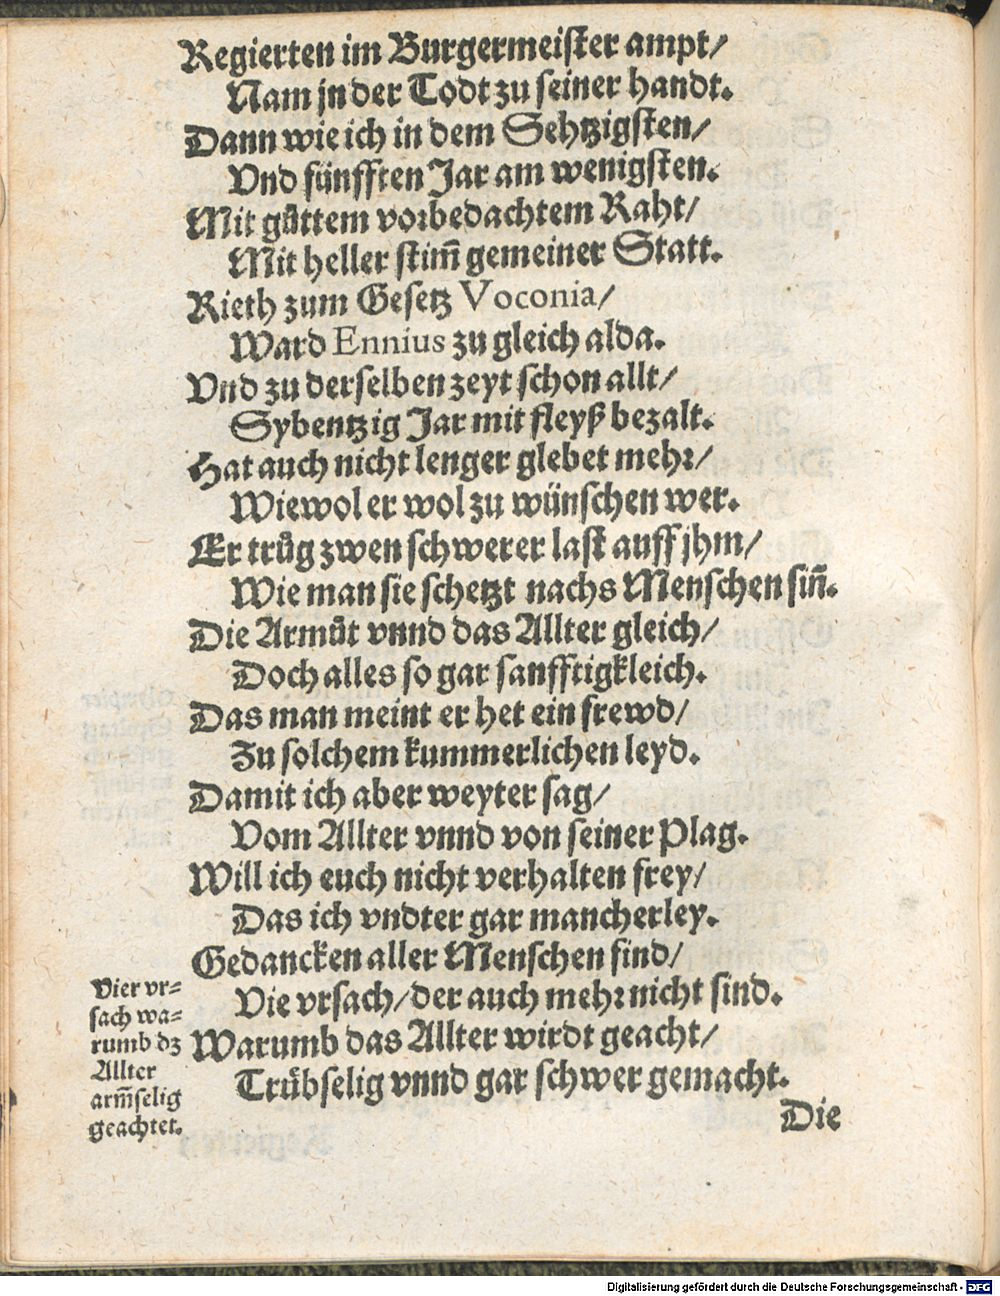 Regierten im Burgermeister ampt/
Nam jn der Todt zu seiner handt.
Dann wie ich in dem Sehtzigsten/
Vnd fünfften Jar am wenigsten.
Mit gůttem vorbedachtem Raht/
Mit heller stim̃ gemeiner Statt.
Rieth zum Gesetz Voconia/
Ward Ennius zu gleich alda.
Vnd zu derselben zeyt schon allt/
Sybentzig Jar mit fleyß bezalt.
Hat auch nicht lenger glebet mehr/
Wiewol er wol zu wünschen wer.
Er trůg zwen schwerer last auff jhm/
Wie man sie schetzt nachs Menschen sin̄.
Die Armůt vnnd das Allter gleich/
Doch alles so gar sanfftigkleich.
Das man meint er het ein frewd/
Zu solchem kummerlichen leyd.
Damit ich aber weyter sag/
Vom Allter vnnd von seiner Plag.
Will ich euch nicht verhalten frey/
Das ich vndter gar mancherley.
Gedancken aller Menschen find/
Vie vrsach/ der auch mehr nicht sind.
Warumb das Allter wirdt geacht/
Trůbselig vnnd gar schwer gemacht.
Vier vr⸗
sach wa⸗
rumb dz
Allter
arm̃selig
geachtet.
Die
Digitalisierung gefördert durch die Deutsche Forschungsgemeinschaft - DFG